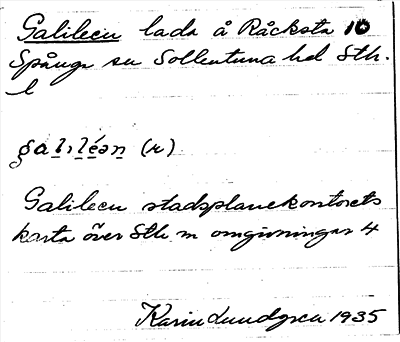 Galileen lada å Råcksta 10
Spånga sn Sollentuna hd Sth.
l
galiléən (r)
Galileen stadsplanekontorets
karta över Sth m omgivningar 4
Karin Lundgren 1935